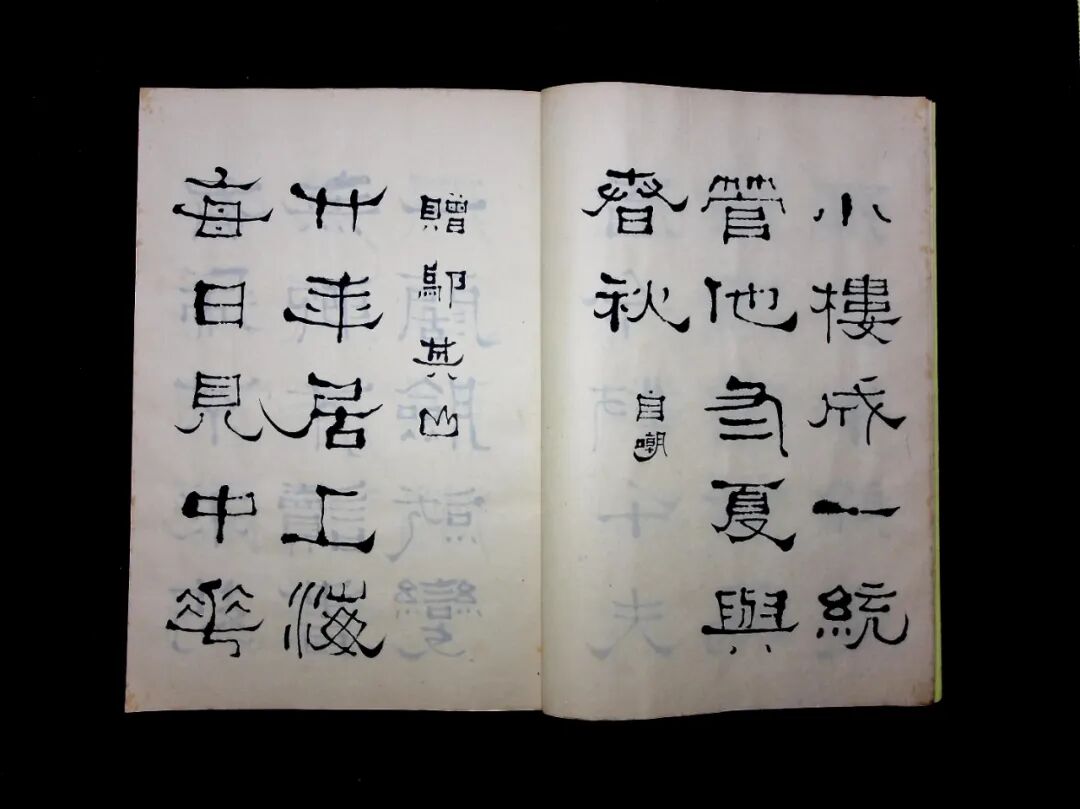 小樓成一統
管他冬夏與
春秋
自嘲
贈鄔其山
廿年居上海
每日見中華